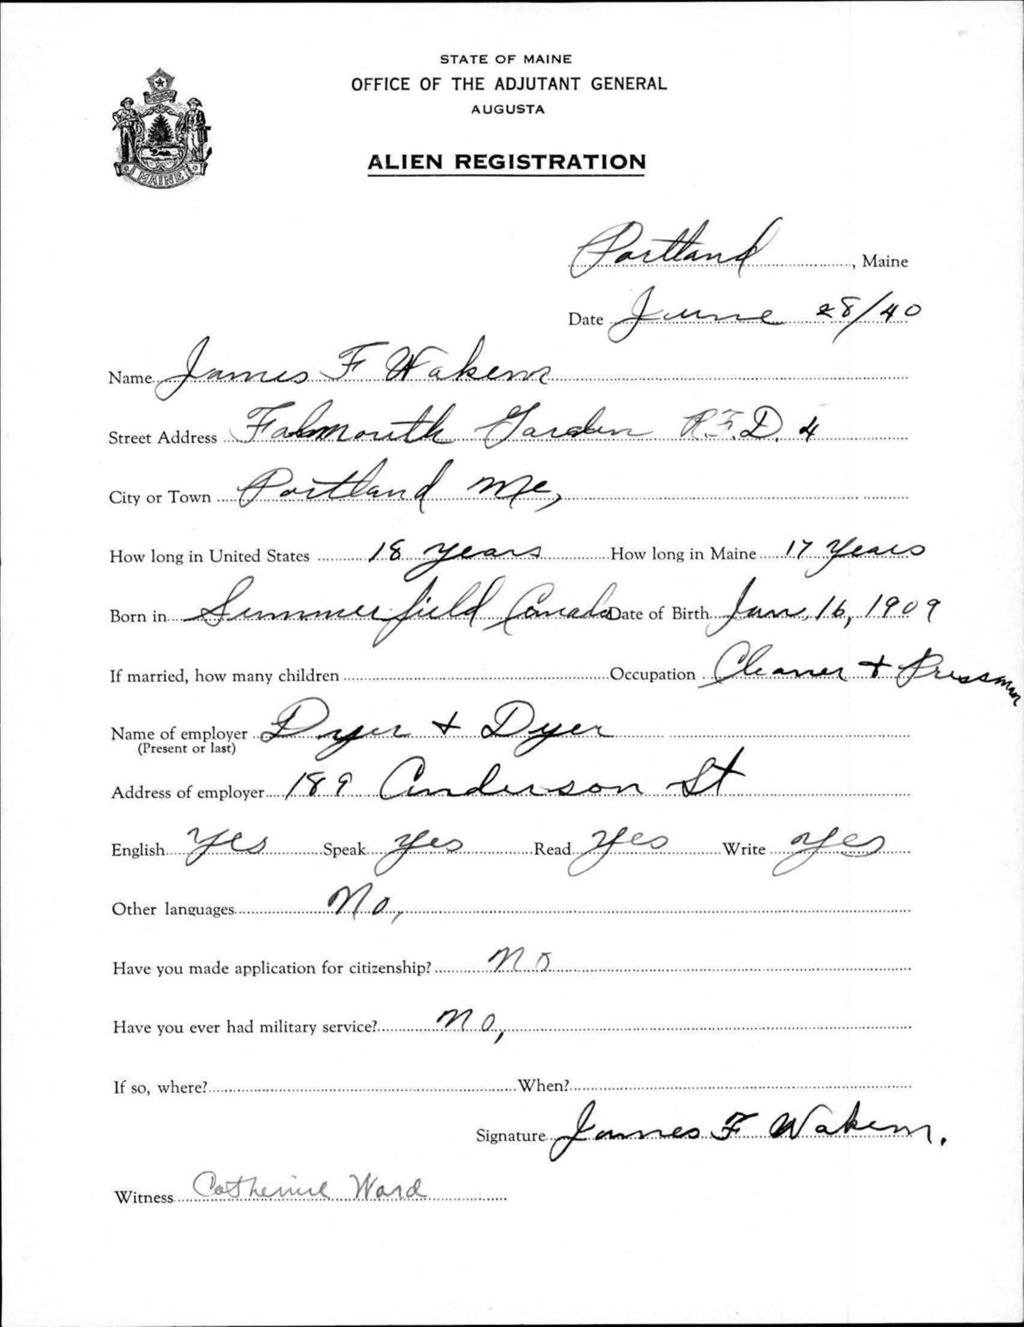 STATE OF MAINE
OFFICE OF THE ADJUTANT GENERAL
AUGUSTA
ALIEN REGISTRATION
MAINE
Portland, Maine
Date June 28/40
Name James F Wakem
Street Address Falmouth Garden R.F.D. 4
City or Town Portland Me,
How long in United States 18 years How long in Maine 17 Years
Born in Summerfield Canada Date of Birth Jan, 16, 1909
If married, how many children Occupation Cleaner + Pressman
Name of employer Dyer + Dyer
(Present or last)
Address of employer 189 Anderson St
English Yes Speak Yes Read Yes Write Yes
Other languages No,
Have you made application for citizenship? No
Have you ever had military service? No,
If so, where? When?
Signature James F Wakem.
Witness Catherine Ward